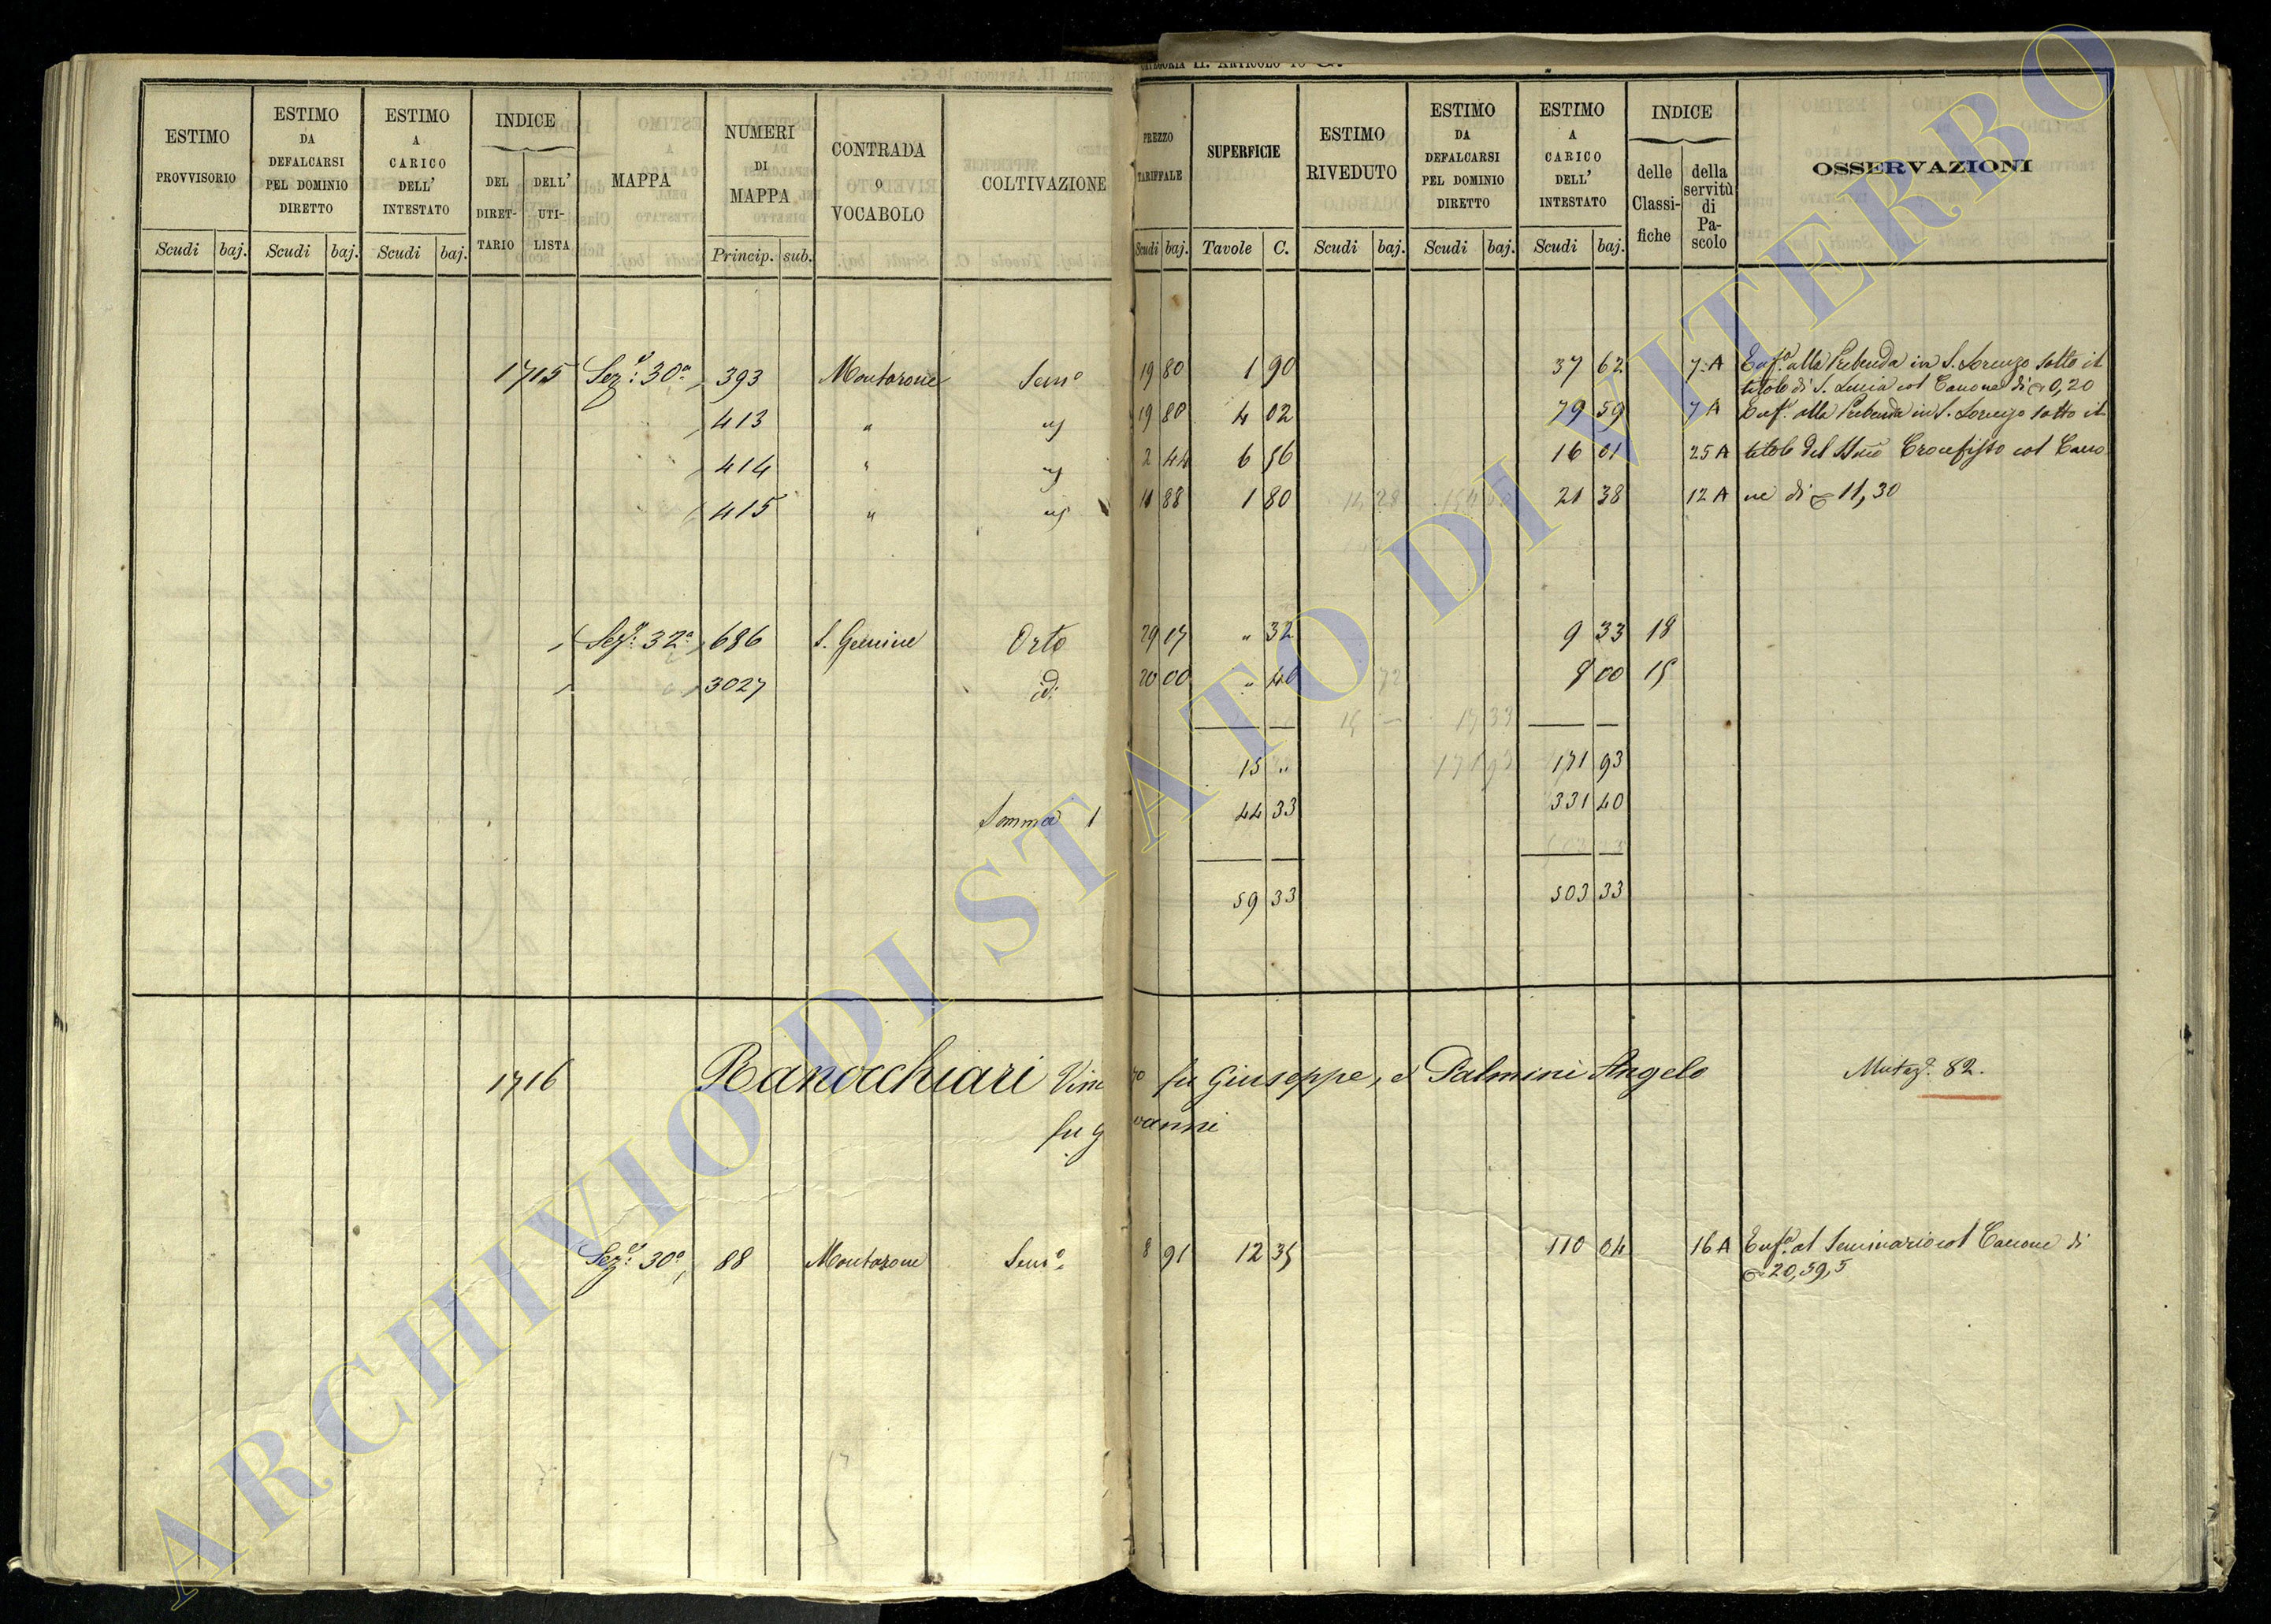 CATEGORIA II. ARTICOLO 10 G.
ESTIMO PROVVISORIO Scudi baj.
ESTIMO DA DEFALCARSI PEL DOMINIO DIRETTO Scudi baj.
ESTIMO A CARICO DELL' INTESTATO Scudi baj.
INDICE DEL DIRET- TARIO DELL' UTI- LISTA
MAPPA
NUMERI DI MAPPA Princip. sub.
CONTRADA O VOCABOLO
COLTIVAZIONE
PREZZO TARIFFALE Scudi baj.
SUPERFICIE Tavole C.
ESTIMO RIVEDUTO Scudi baj.
ESTIMO DA DEFALCARSI PEL DOMINIO DIRETTO Scudi baj.
ESTIMO A CARICO DELL' INTESTATO Scudi baj.
INDICE delle Classi- fiche della servitù di Pa- scolo
OSSERVAZIONI
1715 Sez.e 30a 393 Montarone Sem.o 19 80 1 90 37 62 7 A Enf.a alla Prebenda in S. Lorenzo sotto il
titolo di S. Lucia col Canone di 0,20
413 " 19 80 4 02 79 59 7 A Enf.a alla Prebenda in S. Lorenzo sotto il
414 " 2 44 6 56 16 01 25 A titolo del SSmo Crocefisso col Cano
415 " 11 88 1 80 21 38 12 A ne di 11,30
Sez.e 32a 686 Orto 29 17 " 32 9 33 18
3027 id. 20 00 " 40 8 00 15
15 " 171 93
Somma 1 44 33 331 40
59 33 503 33
1716 Ranocchiari Vinc zo fu Giuseppe, e Palmini Angelo Mutaz.e 82.
fu G vanni
Sez.e 30a 88 Montarone Sem.o 8 91 12 35 110 04 16 A Enf.a al Seminario col Canone di
20,59,5
ARCHIVIO DI STATO DI VITERBO